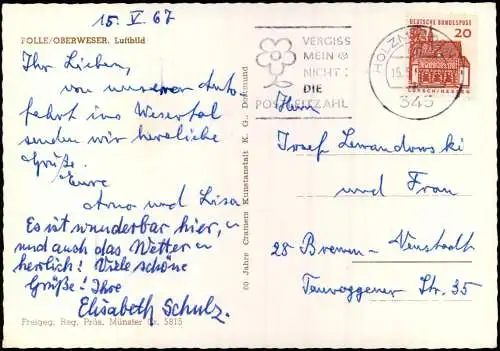 15. V. 67
POLLE/OBERWESER. Luftbild
Ihr Lieben,
von unserer Auto-
fahrt ins Wesertal
senden wir herzliche
Grüße.
Eure
Arno und Lisa
Es ist wunderbar hier,
und auch das Wetter
herrlich! Viele schöne
Grüße! Ihre
Elisabeth Schulz.
Freigeg. Reg. Präs. Münster Nr. 5815
90 Jahre Cramers Kunstanstalt K. G., Dortmund
VERGISS
MEIN
NICHT:
DIE
POSTLEITZAHL
HOLZMINDEN
15.5.
345
DEUTSCHE BUNDESPOST
20
LORSCH/HESSEN
Herrn
Josef Lewandowski
und Frau
28 Bremen-Neustadt
Tauroggener Str. 35